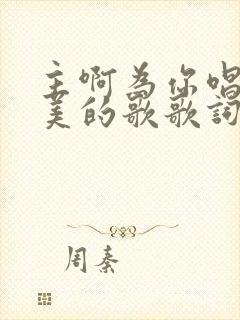 主啊为你唱
美的歌歌詞
周秦